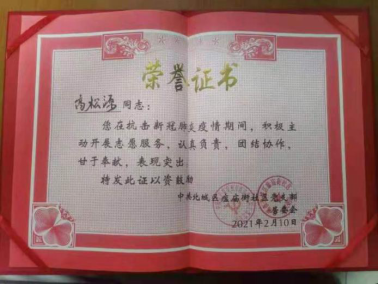 荣誉证书
同志：
您在抗击新冠肺炎疫情期间，积极主
动开展志愿服务，认真负责，团结协作，
甘于奉献，表现突出，
特发此证以资鼓励
中共北城区 街社区党支部
2021年2月10日